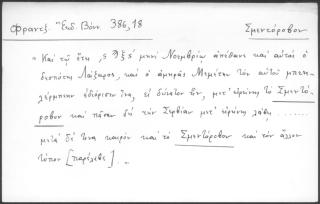 Φραντζ. Ἔκδ. Βόνν. 386,18 Σμεντόροβον
"Καὶ τῷ ἔτει , ςϠξς΄ μηνὶ Νοεμβρίῳ ἀπέθανε καὶ αὐτὸς ὁ
δεσπότης Λάζαρος, καὶ ὁ ἀμηρᾶς Μεμέτης τὸν αὐτοῦ
ἐδιόρισεν ἵνα, εἰ δυνατὸν ἦν, μετ' εἰρήνης τὸ Σμεντό-
ροβον καὶ πᾶσαν δὲ τὴν Σερβίαν μετ' εἰρήνης λάβῃ ........
μετὰ δέ τινα καιρὸν καὶ τὸ Σμεντόροβον καὶ τὸν ἄλλον
τόπον [παρέλαβε] .